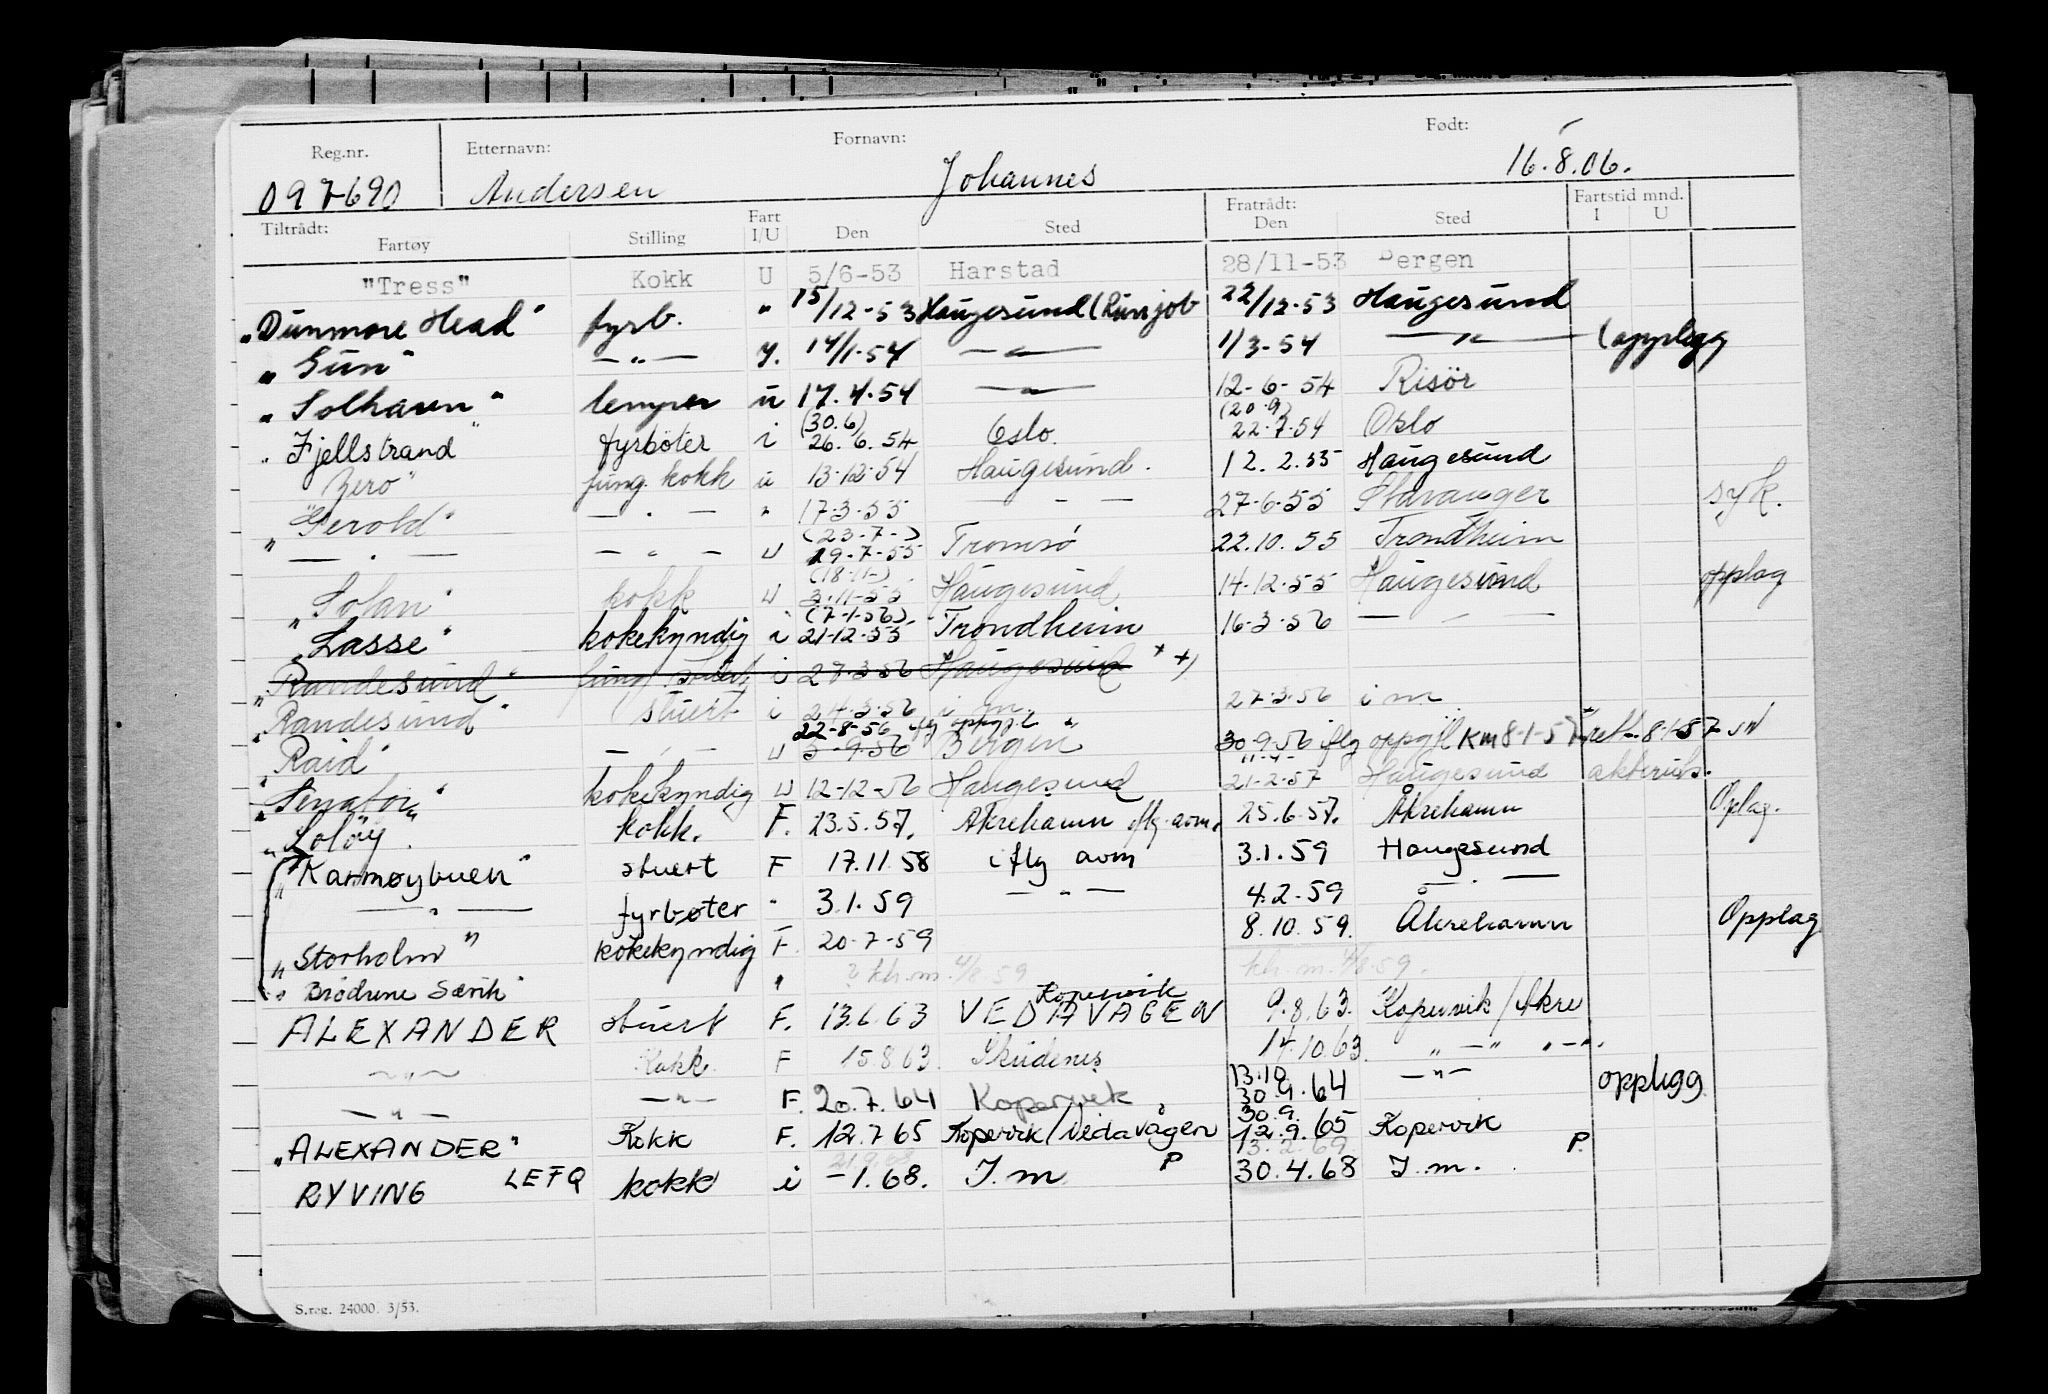 Reg.nr. Etternavn: Fornavn: Født:
097690 Andersen Johannes 16.8.06.
Tiltrådt: Fart Fratrådt: Fartstid mnd.
Fartøy Stilling I/U Den Sted Den Sted I U
"Tress" Kokk U 5/6-53 Harstad 28/11-53 Bergen
"Dunmore Head" fyrb. " 15/12-53 Haugesund (Runjob 22/12-53 Haugesund
"Gun" —"— 14/1-54 —"— 1/3-54 —"— (opplegg
"Solhavn" lemper u 17.4.54 —"— 12-6-54 Risör
(30.6) (20.9)
"Fjellstrand" fyrböter i 26.6.54 Oslo. 22.7.54 Oslo
Zero" fung. kokk u 13-12-54 Haugesund. 12.2.55 Haugesund
"Gerold" — " — " 17-3-55 — — 27-6-55 Stavanger syk.
(23-7-)
" — " — — " — U 29-7-55 Tromsö 22.10.55 Trondheim
(18-11-)
"Solan" kokk U 3-11-55 Haugesund 14-12-55 Haugesund opplag
(7-1-56)
"Lasse" kokekyndig i 21-12-55 Trondheim 16-3-56 — " —
"Randesund" fung i 27-3-56 Haugesund x +)
"Randesund" stuert i 24-3-56 i m. 27-3-56 i m
22-8-56 iflg oppgj.l
"Raid" — " — U 3-9-56 Bergen 30-9-56 iflg oppgjl KM 8-1-57
"Senator" kokekyndig U 12-12-56 Haugesund 21-2-57 Haugesund
"Soløy" kokk. F. 23.5.57. Åkrehamn iflg. avm. 25.6.57. Åkrehamn Oplag.
"Karmøybuen" stuert F 17.11.58 iflg avm 3.1.59 Haugesund
— " — fyrbøter " 3.1.59 — " — 4.2.59 — " —
"Storholm" kokekyndig F. 20-7-59 8.10.59. Åkrehamn Opplag
"Brödrene Sævik" " ? kh.m. 4/8.59 kh.m. 4/8.59.
Kopervik
ALEXANDER stuert F. 13.6.63 VEDAVÅGEN 9.8.63. Kopervik/Åkre
—"— Kokk F 15.8.63. Skudenes 14.10.63. " — " " — "
13.10
—"— —"— F. 20.7.64 Kopervik 30.9.64 —"— opplegg
30.9.
"ALEXANDER" Kokk F. 12.7.65 Kopervik/Vedavågen 12.9.65 Kopervik
13.2.69 P.
RYVING LEFQ kokk i -1.68. I.m P 30.4.68 I.m.
S.reg. 24000. 3/53.